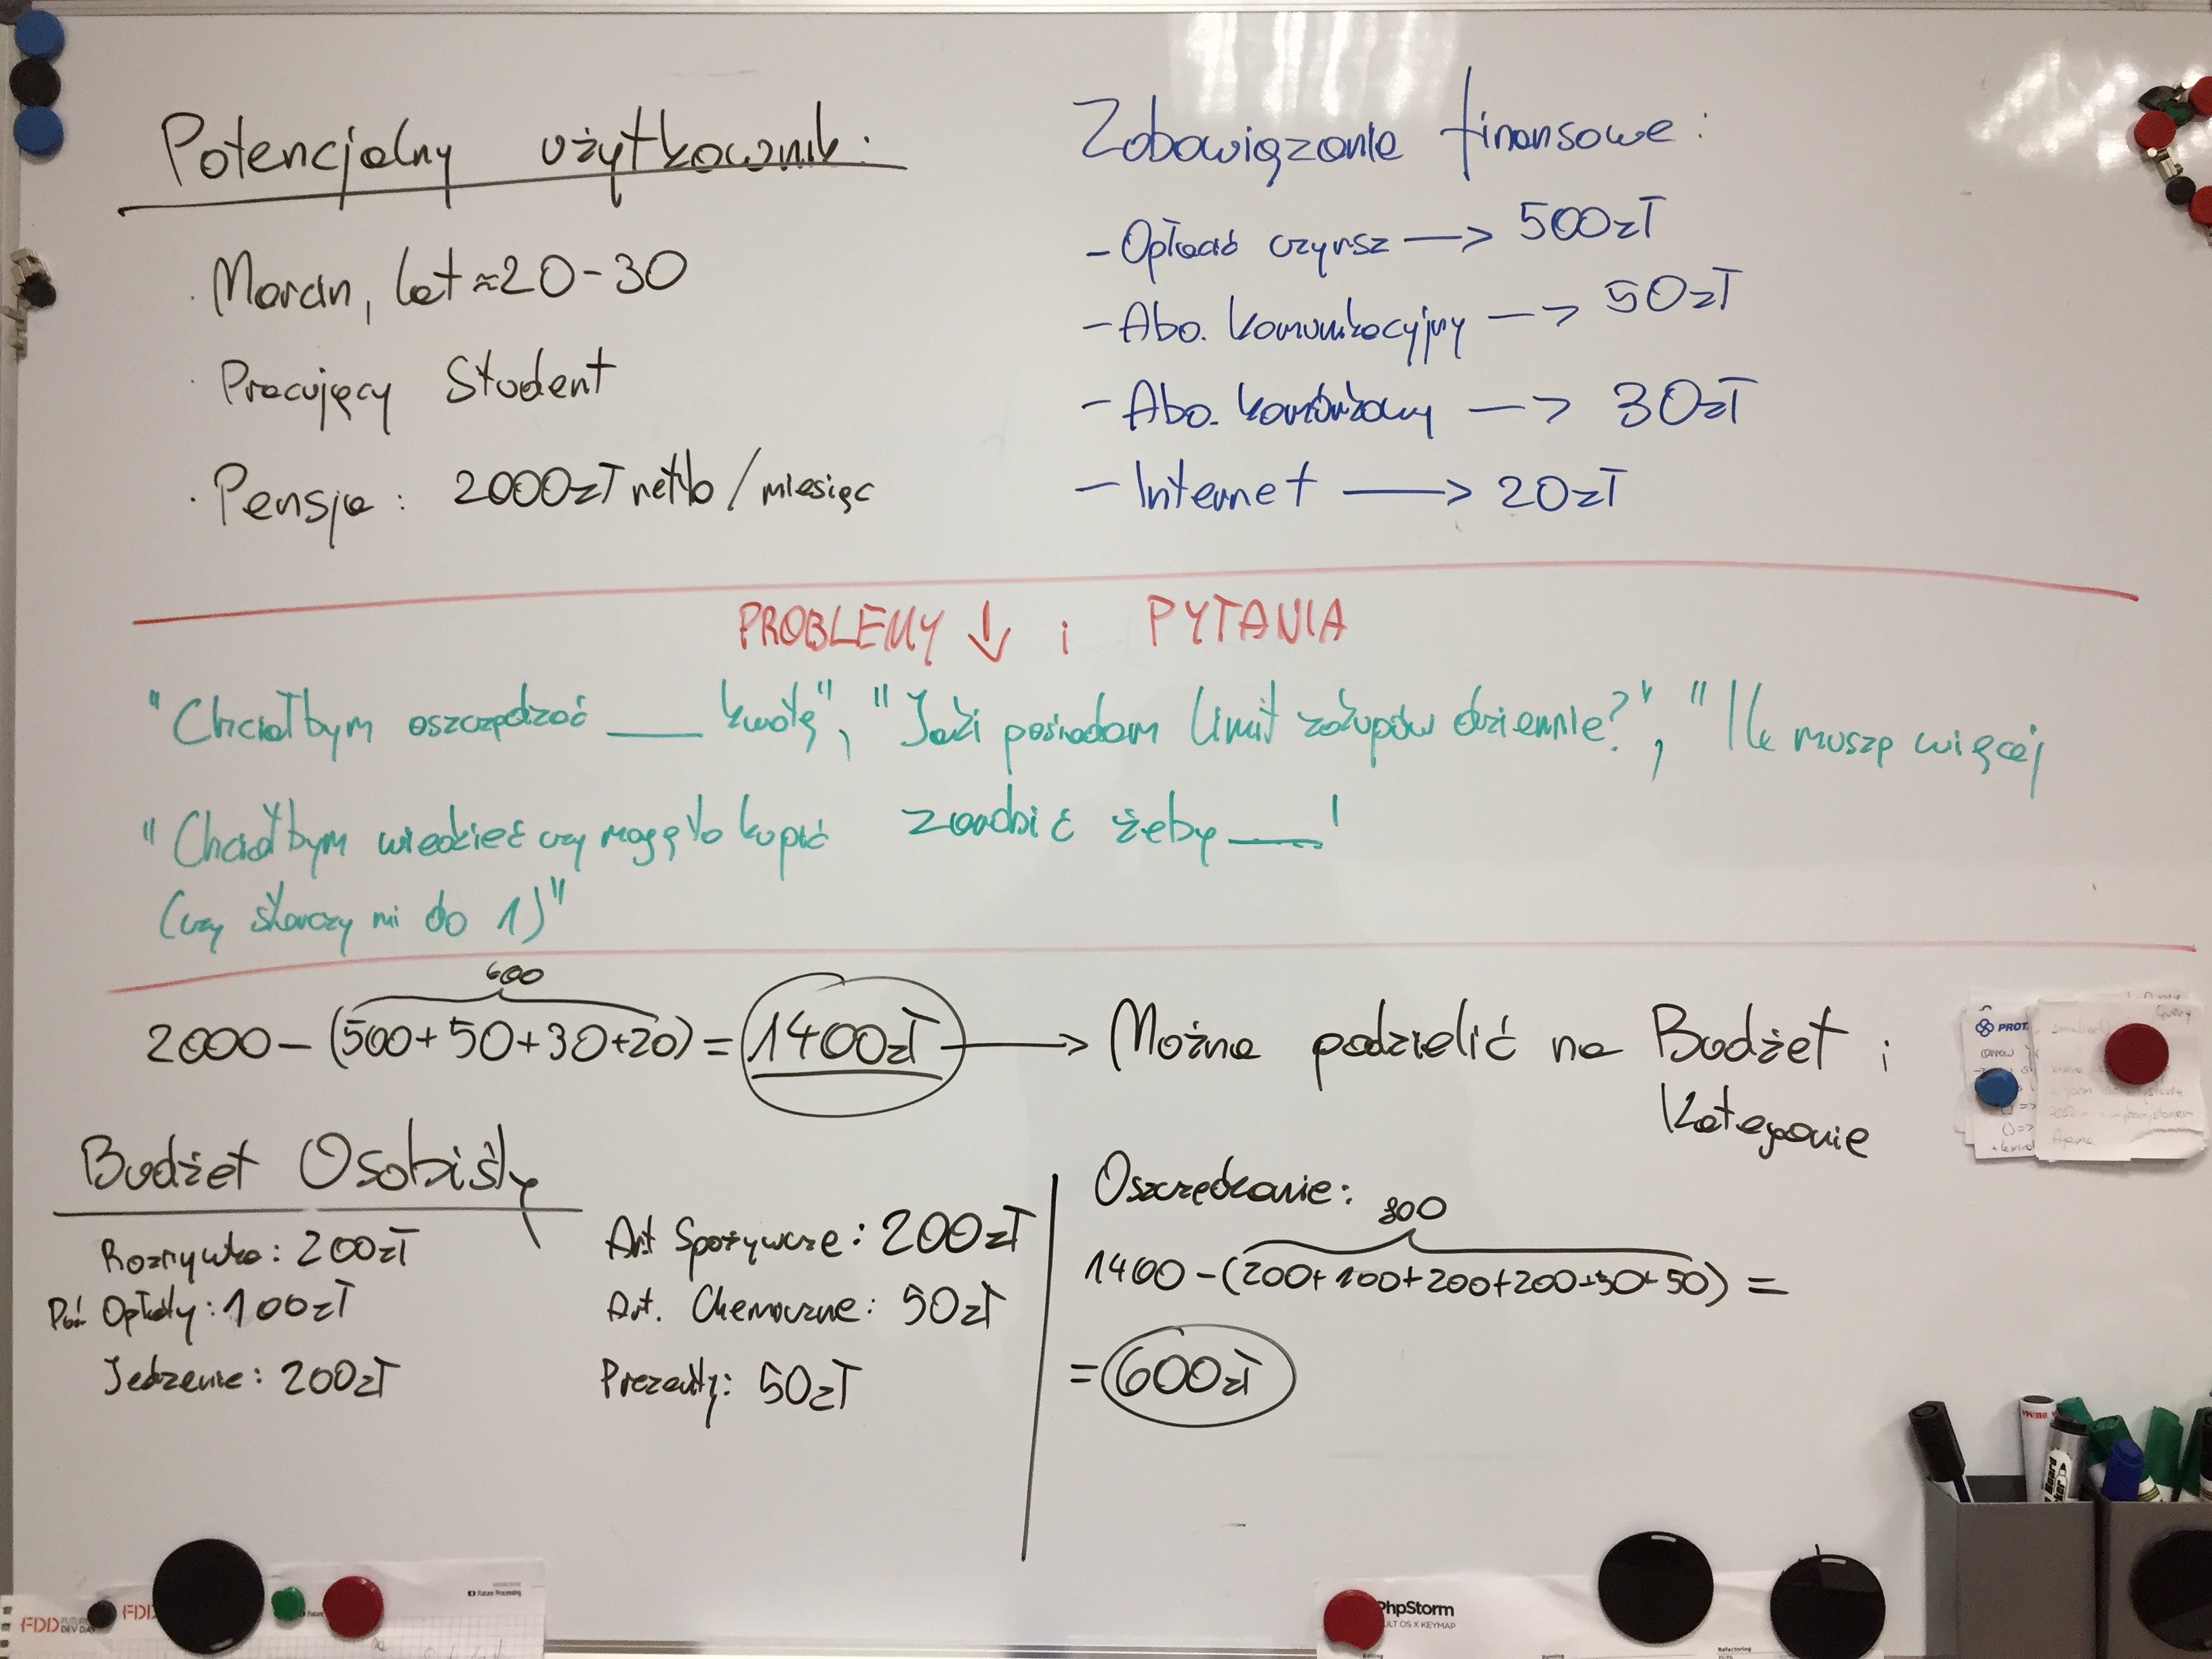 Potencjalny użytkownik:
· Marcin, lat ≈20-30
· Pracujący Student
· Pensja: 2000zł netto/miesiąc
Zobowiązanie finansowe:
- Opłacić czynsz —> 500zł
- Abo. komunikacyjny —> 50zł
- Abo. komórkowy —> 30zł
- Internet —> 20zł
PROBLEMY ↓ i PYTANIA
"Chciałbym oszczędzać ___ kwotę", "Jaki posiadam limit zakupów dziennie?", "Ile muszę więcej
zarobić żeby ___"
"Chciałbym wiedzieć czy mogę to kupić
(czy starczy mi do 1)"
600
2000-(500+50+30+20)=1400zł —> Można podzielić na Budżet i
Kategorie
Budżet Osobisty
Rozrywka: 200zł
Opłaty: 100zł
Jedzenie: 200zł
Art Spożywcze: 200zł
Art. Chemiczne: 50zł
Prezenty: 50zł
Oszczędzanie:
800
1400-(200+100+200+200+50+50)=
=600zł
PROT
FDD
FDD
Future Processing
PhpStorm
ULT OS X KEYMAP
Refactoring